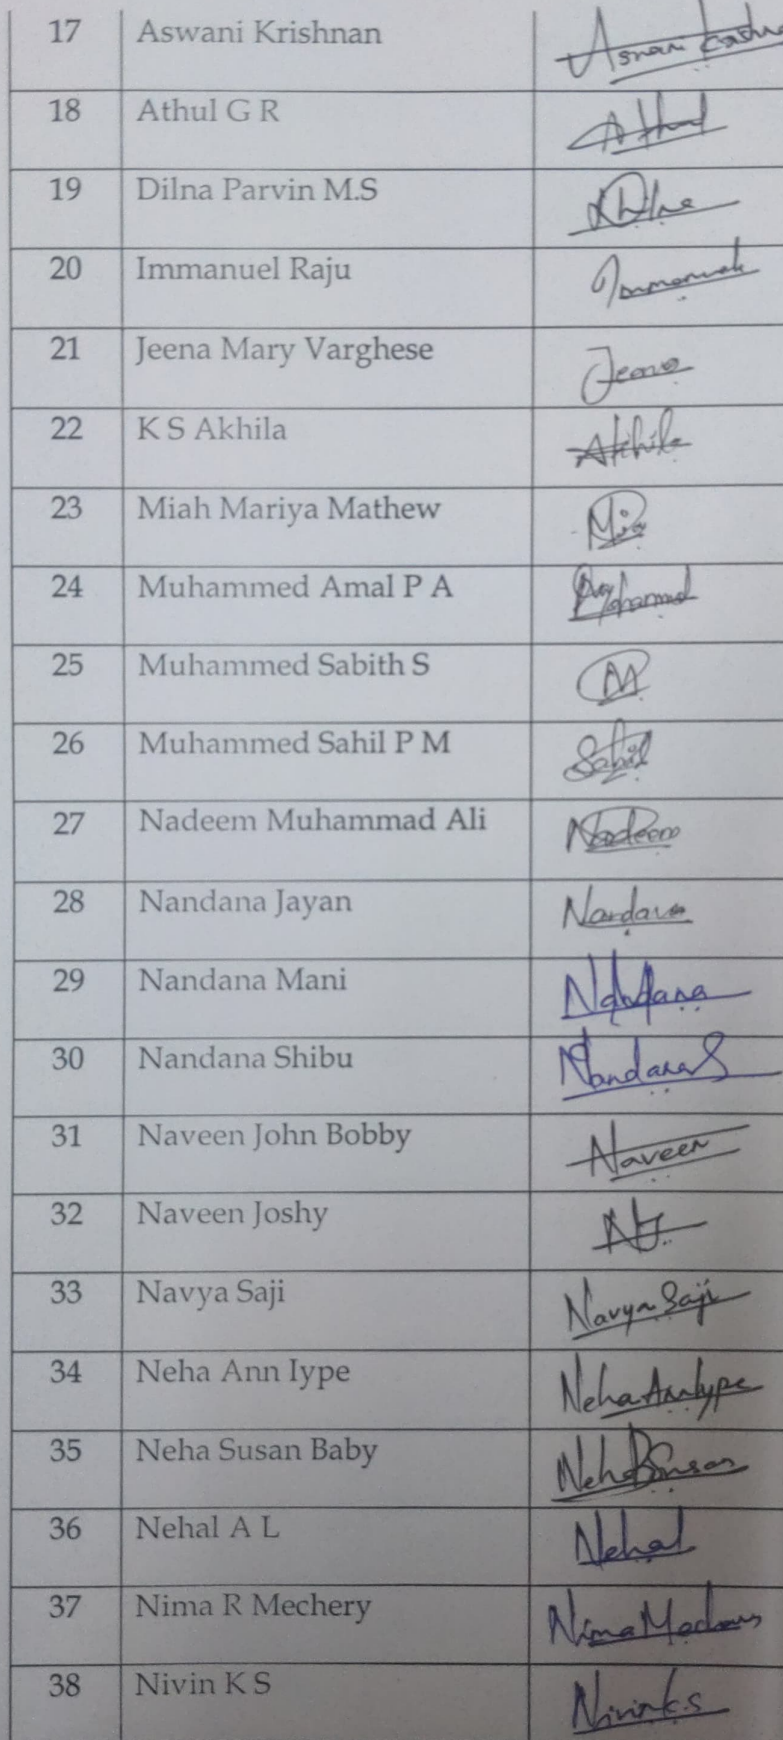 17 Aswani Krishnan
18 Athul G R Athul
19 Dilna Parvin M.S Dilna
20 Immanuel Raju Immanuel
21 Jeena Mary Varghese Jeena
22 K S Akhila Akhila
23 Miah Mariya Mathew Mia
24 Muhammed Amal P A
25 Muhammed Sabith S M
26 Muhammed Sahil P M Sahil
27 Nadeem Muhammad Ali Nadeem
28 Nandana Jayan Nandana
29 Nandana Mani Nandana
30 Nandana Shibu Nandana S
31 Naveen John Bobby Naveen
32 Naveen Joshy NJ
33 Navya Saji Navya Saji
34 Neha Ann Iype Neha Ann Iype
35 Neha Susan Baby Neha Susan
36 Nehal A L Nehal
37 Nima R Mechery Nima
38 Nivin K S Nivin K.S